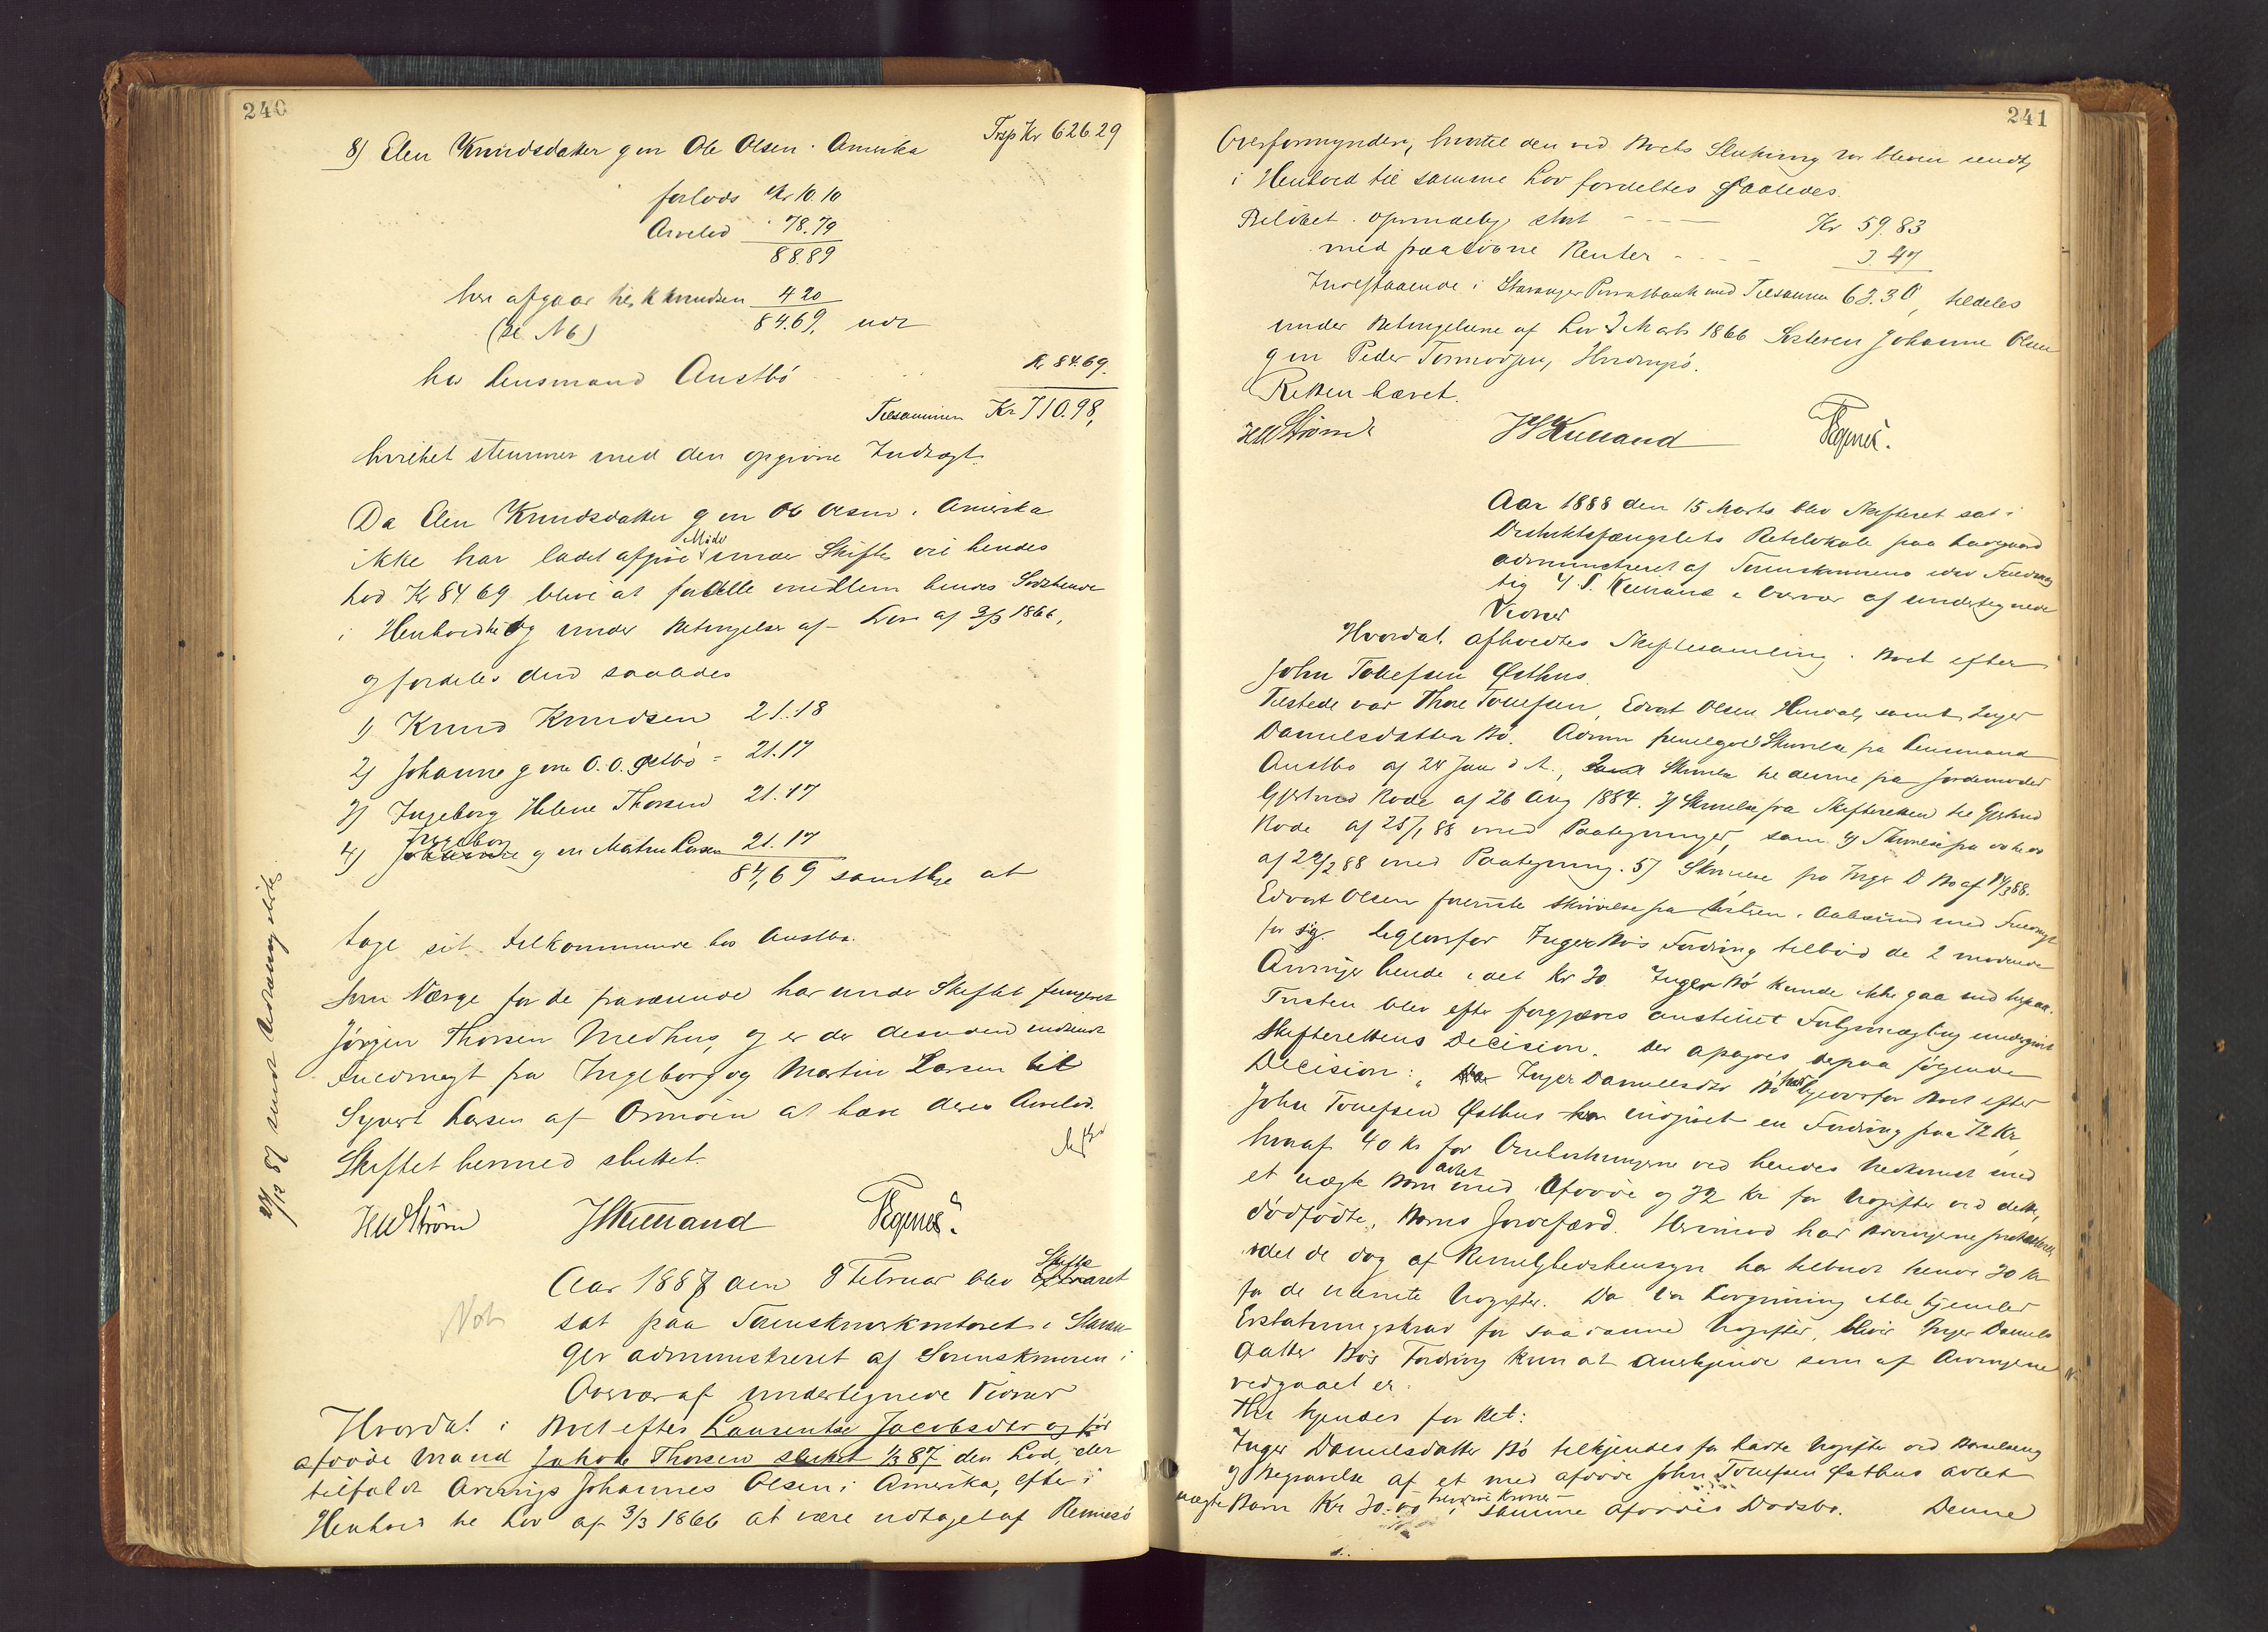 240
Trsp Kr 626.29
8) Elen Knudsdatter g m Ole Olsen. Amerika
forlods Kr 10.10
Arvelod " 78.79
88.89
her afgaar til K Knudsen 4 20
(se N 6) 84.69, udr
hos Lensmand Austbö Kr 84.69.
Tilsammen Kr 710.98,
hvilket stemmer med den opgivne Indtægt.
Da Elen Knudsdatter g m Ole Olsen i Amerika
ikke har ladet afgive Møde under Skiftet vil hendes
Lod Kr 84 69 blive at fordele mellem hendes Sødskende
i Henhold til og under Betingelse af Lov af 3/3 1866,
og fordeles den saaledes
1) Knud Knudsen 21.18
2) Johanne g m O. O. Østbö - 21.17
3) Ingeborg Helene Thorsen 21.17
4) Johanne Ingeborg g m Martin Larsen 21.17
84,69 samtlige at
tage sit tilkommende hos Austbö.
Som Værge for de fraværende har under Skiftet fungeret
Jörgen Thorsen Medhus, og er der desuden indsendt
Fuldmagt fra Ingeborg og Martin Larsen til
Syvert Larsen af Ormöen at hæve deres Arvelod.
Skiftet hermed sluttet.
HW Ström JSKielland
Aar 1887 den 8 Februar blev Skifteretten
sat paa Sorenskriverkontoret i Stavan-
ger administreret af Sorenskriveren i
Overvær af undertegnede Vidner
Hvorda: i Boet efter Laurentse Jacobsdtr og før
afdøde Mand Jakob Thorsen sluttet 1/3 87 den Lod, der
tilfaldt Arvings Johannes Olsen i Amerika, efter i
Henhold til Lov af 3/3 1866 at være udtaget af Rennesö
Not
241
Overformynderi, hvortil den ved Boets Slutning var bleven sendt,
i Henhold til samme Lov fordeltes saaledes
Belöbet oprindelig stort - - - Kr 59.83
med paalöbne Renter - - - 3.47
Indestaaende i Stavanger Privatbank med Tilsammen 63.30, tildeles
under Betingelserne af Lov 3 Marts 1866 Søsteren Johanne Olsen
g m Peder Tormodsen,
Retten hævet.
HW Ström JSKielland
Aar 1888 den 15 Marts blev Skifteret sat i
Distriktsfængslets Retslokale paa Laugaard
administreret af Sorenskriverens edsv Fuldmæg
tig J S. Kielland i Overvær af undertegnede
Vidner
Hvorda: afholdtes Skiftesamling i Boet efter
John Tollefsen Østhus.
Tilstede var Thore Tollefsen, Edvart Olsen samt Inger
Danielsdatter Bö. Adm fremlagde Skrivelse fra Lensmand
Austbö af 24 Jan d A., Skrivelse til denne fra Jordemoder
Gjertrud Rode af 26 Aug 1884. 3) Skrivelse fra Skifteretten til Gjertrud
Rode af 25/1 88 med Paategninger, samt 4) Skrivelse fra
af 29/2 88 med Paategning. 5) Skrivelse fra Inger D Bö af 14/3 88.
Edvart Olsen foreviste Skrivelse fra Søstren i Aalesund med Fuldmagt
for sig. Ligeoverfor Inger Bö's Fordring tilböd de 2 mødende
Arvinger hende i det Kr 30. Inger Bö kunde ikke gaa ind herpaa.
Tvisten blev efter forgjæves anstillet Forligsmægling undergivet
Skifterettens Decision. Der afsagdes derpaa følgende
Decision: " Inger Danielsdtr Bö har ligeoverfor Boet efter
John Tollefsen Østhus indgivet en Fordring paa 72 Kr,
hvoraf 40 Kr for Omkostningerne ved hendes Nedkomst med
et uægte Barn avlet med Afdøde og 32 Kr for Udgifter ved dette,
dödfödte, Barns Jordefærd. Herimod har Arvingerne protesteret,
idet de dog af Billighedshensyn har tilbudt hende 30 Kr
for de nævnte Udgifter. Da vor Lovgivning ikke hjemler
Erstatningskrav for saadanne Udgifter, bliver Inger Daniels
datter Bö's Fordring kun at anerkjende som af Arvingerne
vedgaaet er.
Thi kjendes for Ret:
Inger Danielsdatter Bö tilkjendes for havte Udgifter ved Barselseng
og Begravelse af et med afdøde John Tollefsen Østhus avlet
uægte Barn Kr 30.00 tredive Kroner i samme Afdødes Dødsbo. Denne